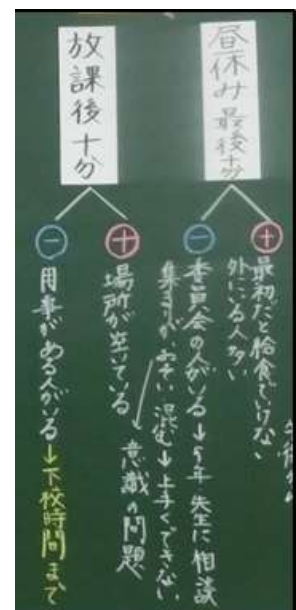 昼休み最後十分
⊕最初だと給食でいけない
外にいる人多い
⊖委員会の人がいる→5年 先生に相談
集まりが、おそい 混む→上手くできない
意識の問題
放課後十分
⊕場所が空いている
⊖用事がある人がいる→下校時間まで